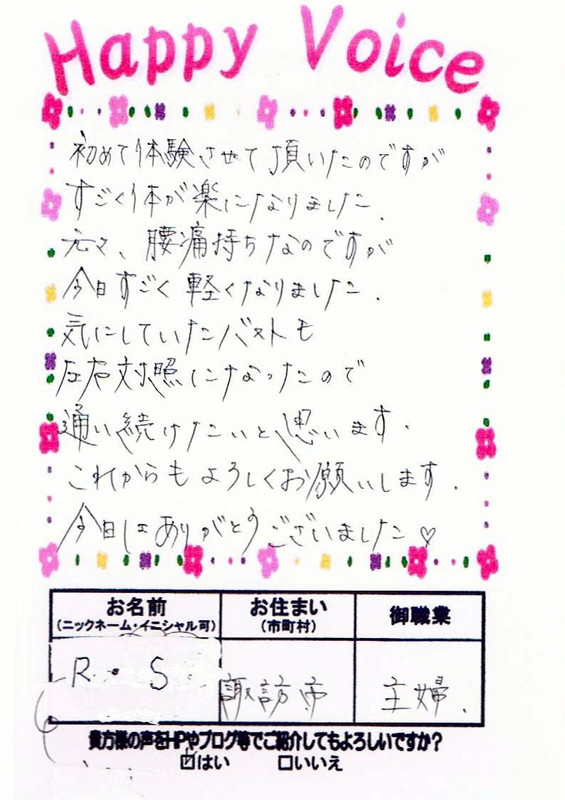 Happy Voice
初めて体験させて頂いたのですが
すごく体が楽になりました.
元々、腰痛持ちなのですが
今日すごく軽くなりました.
気にしていたバストも
左右対照になったので
通い続けたいと思います.
これからもよろしくお願いします.
今日はありがとうございました♡
お名前 お住まい 御職業
(ニックネーム・イニシャル可) (市町村)
R・S 諏訪市 主婦.
貴方様の声をHPやブログ等でご紹介してもよろしいですか?
☑はい □いいえ